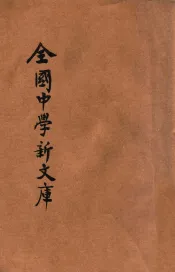 全國中學新文庫